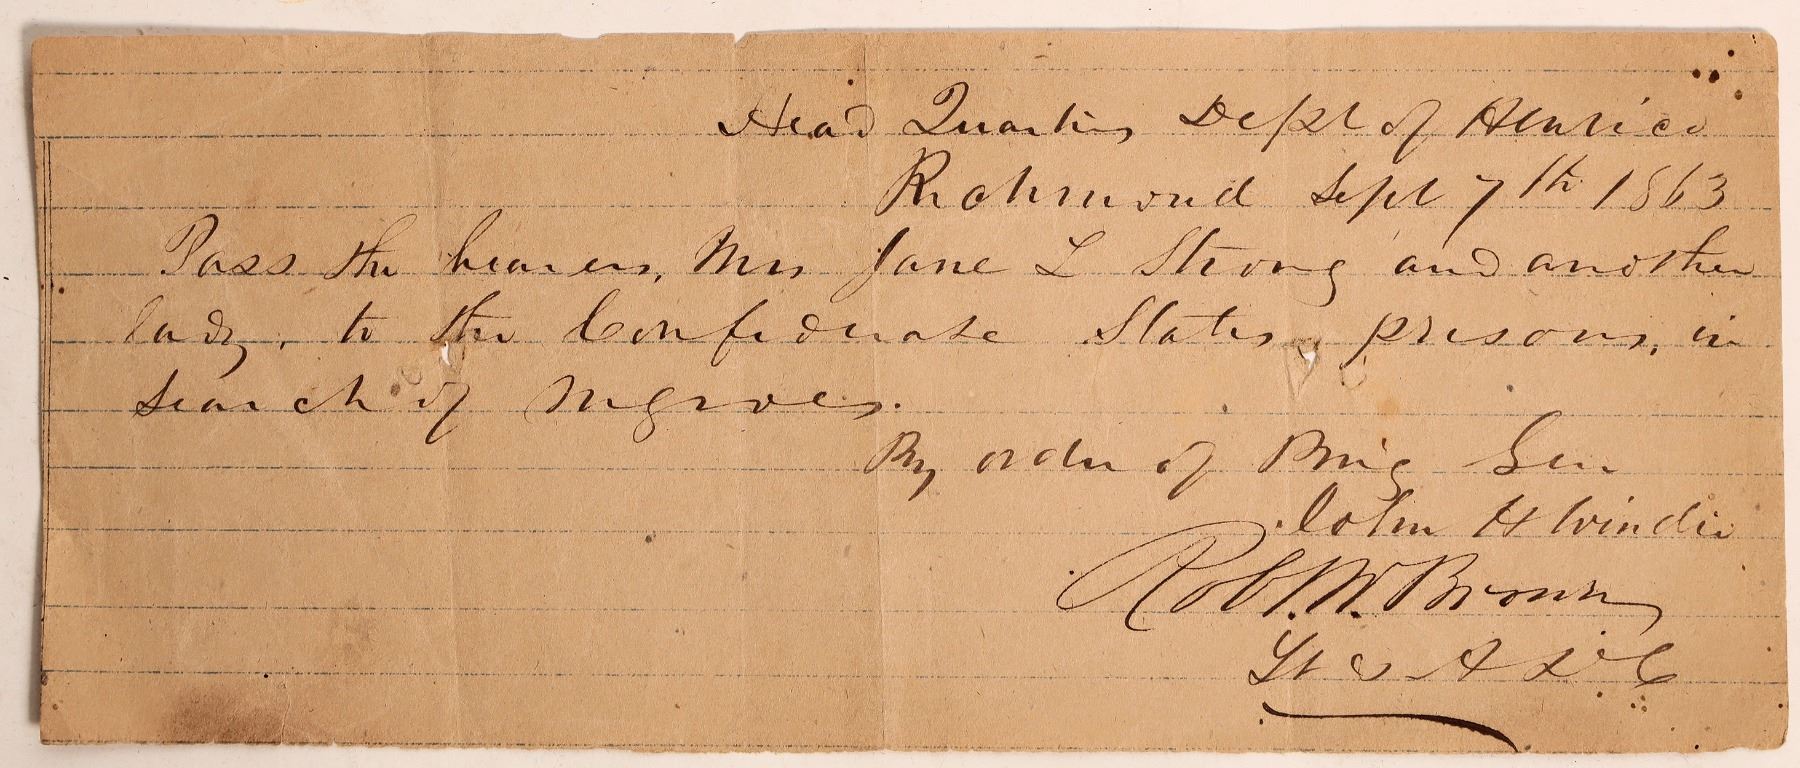 Head Quarters Dept of Henrico
Richmond Sept 7th 1863
Pass the bearers, Mrs Jane L Strong and another
lady, to the Confederate States prisons, in
search of negroes.
By order of Brig Gen
John H Winder
Robt. W. Brown
Lt & A D C